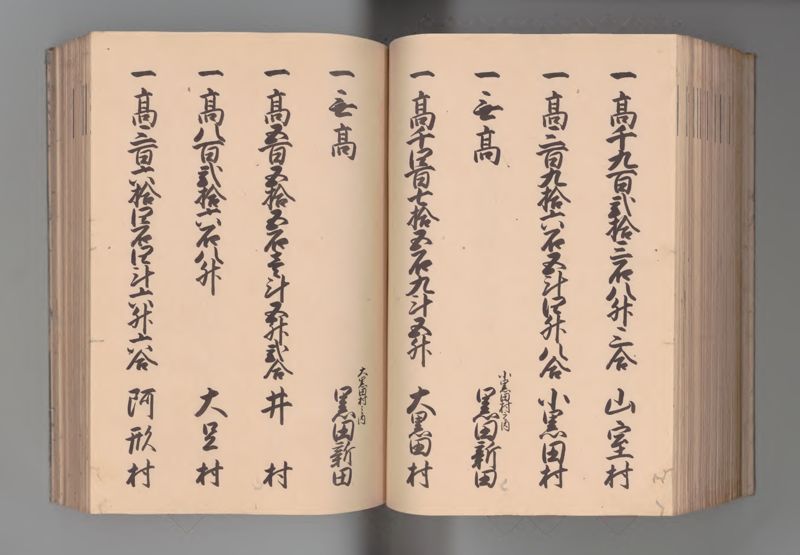 一 高千九百弐拾三石八升三合 山室村
一 高三百九拾六石五斗四升八合 小黒田村
一 無高 小黒田村之内 黒田新田
一 高千四百七拾五石九斗五升 大黒田村
一 無高 大黒田村之内 黒田新田
一 高五百五拾五石壱斗五升弐合 井村
一 高八百弐拾六石八升 大足村
一 高三百六拾四石四斗六升六合 阿形村